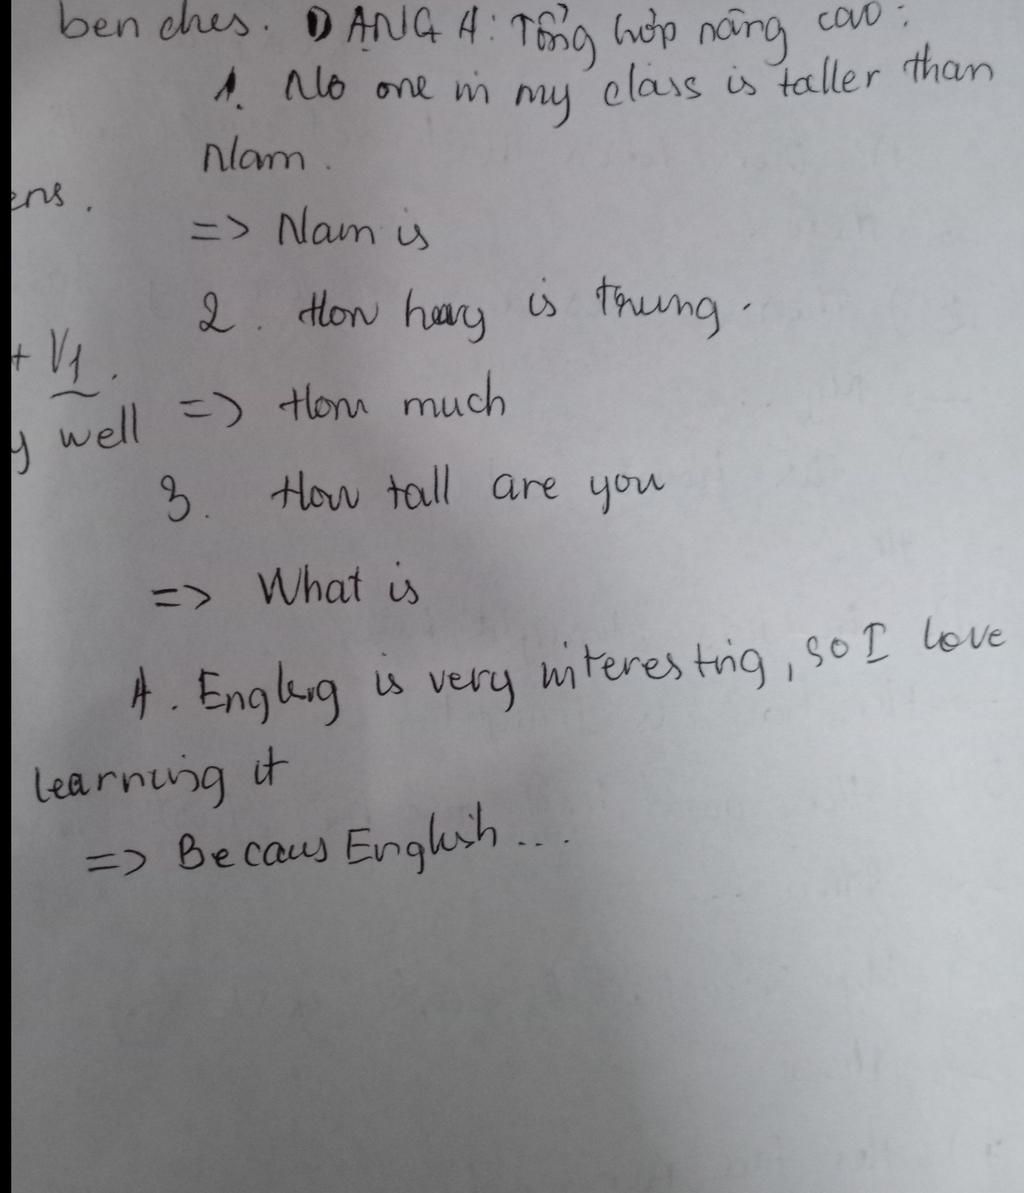 ben ches. DẠNG 4: Tổng hợp nâng cao:
1. No one in my class is taller than
Nam.
ens.
=> Nam is
2. How heavy is Trung.
+ V1.
=> How much
y well
3. How tall are you
=> What is
4. English is very interesting, so I love
learning it
=> Becaus English...